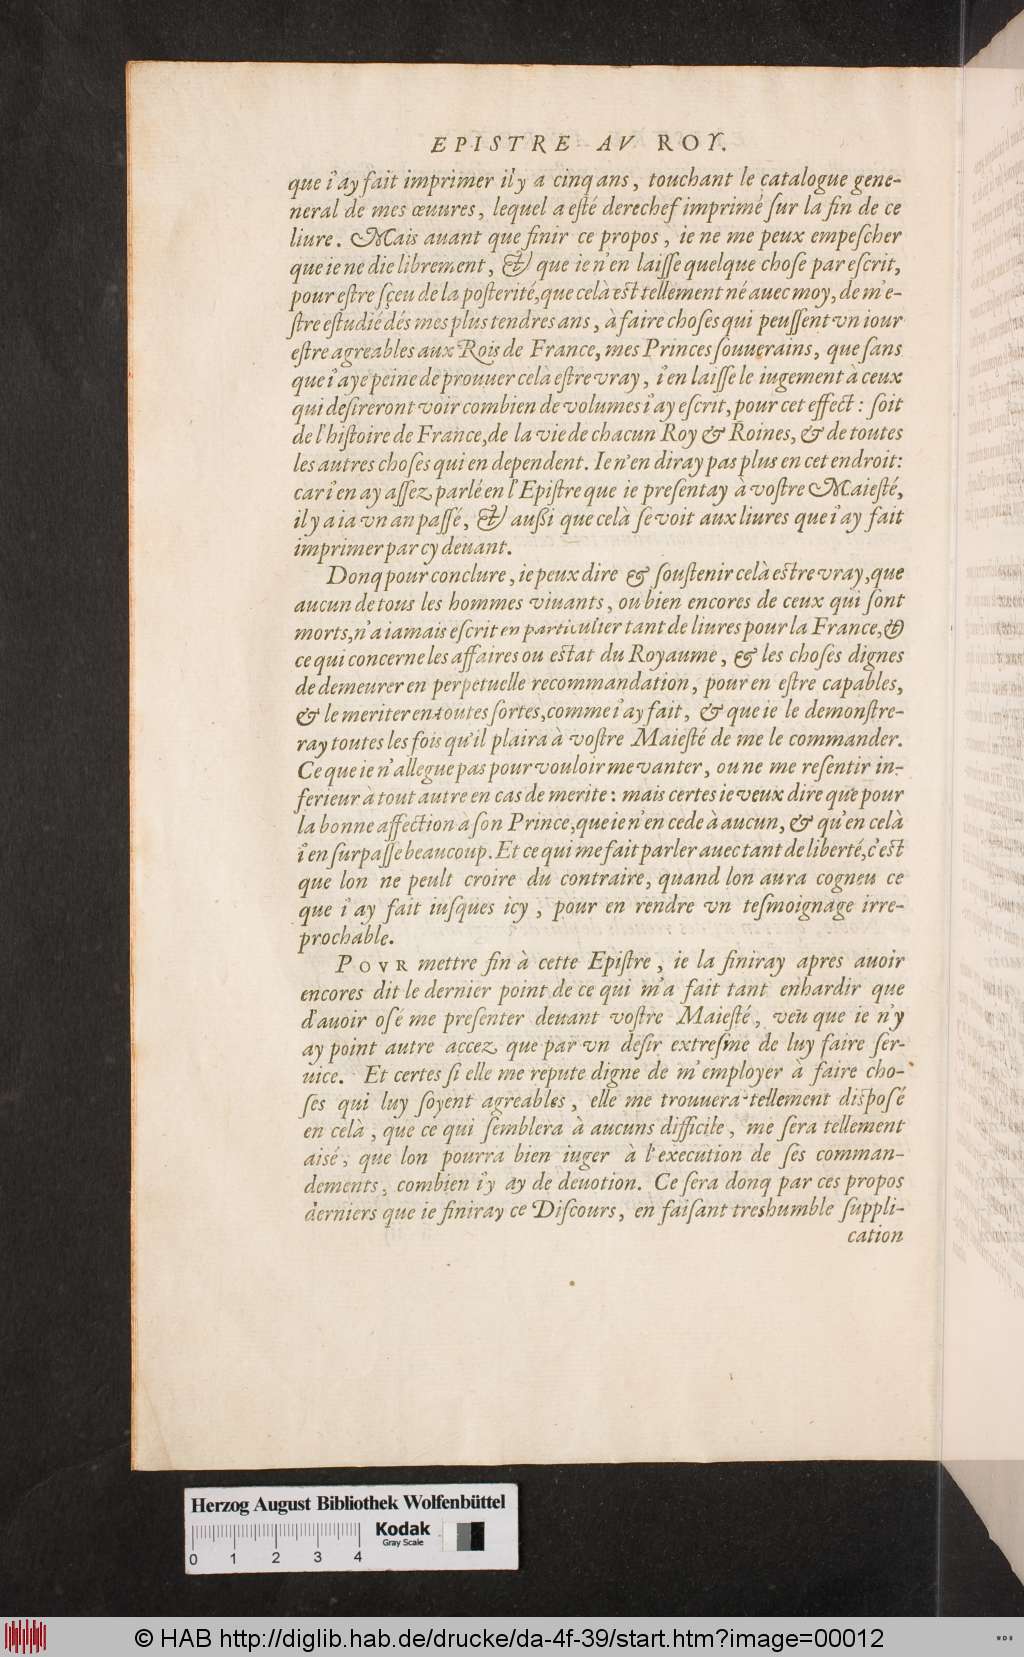 EPISTRE AV ROY.
que i'ay fait imprimer il y a cinq ans, touchant le catalogue gene-
neral de mes œuures, lequel a esté derechef imprimé ſur la fin de ce
liure. Mais auant que finir ce propos, ie ne me peux empeſcher
que ie ne die librement, & que ie n'en laiſſe quelque choſe par eſcrit,
pour eſtre ſçeu de la poſterité, que celà est tellement né auec moy, de m'e-
ſtre eſtudié dés mes plus tendres ans, à faire choſes qui peuſſent vn iour
eſtre agreables aux Rois de France, mes Princes ſouuerains, que ſans
que i'aye peine de prouuer celà eſtre vray, i'en laiſſe le iugement à ceux
qui deſireront voir combien de volumes i'ay eſcrit, pour cet effect : ſoit
de l'hiſtoire de France, de la vie de chacun Roy & Roines, & de toutes
les autres choſes qui en dependent. Ie n'en diray pas plus en cet endroit:
car i'en ay aſſez parlé en l'Epiſtre que ie preſentay à voſtre Maieſté,
il y a ia vn an paſſé, & außi que celà ſe voit aux liures que i'ay fait
imprimer par cy deuant.
Donq pour conclure, ie peux dire & ſouſtenir celà estre vray, que
aucun de tous les hommes viuants, ou bien encores de ceux qui ſont
morts, n'a iamais eſcrit en particulier tant de liures pour la France, &
ce qui concerne les affaires ou estat du Royaume, & les choſes dignes
de demeurer en perpetuelle recommandation, pour en eſtre capables,
& le meriter en toutes ſortes, comme i'ay fait, & que ie le demonſtre-
ray toutes les fois qu'il plaira à voſtre Maieſté de me le commander.
Ce que ie n'allegue pas pour vouloir me vanter, ou ne me reſentir in-
ferieur à tout autre en cas de merite : mais certes ie veux dire que pour
la bonne affection à ſon Prince, que ie n'en cede à aucun, & qu'en celà
i'en ſurpaſſe beaucoup. Et ce qui me fait parler auec tant de liberté, c'est
que lon ne peult croire du contraire, quand lon aura cogneu ce
que i'ay fait iuſques icy, pour en rendre vn teſmoignage irre-
prochable.
POVR mettre fin à cette Epiſtre, ie la finiray apres auoir
encores dit le dernier point de ce qui m'a fait tant enhardir que
d'auoir oſé me preſenter deuant voſtre Maieſté, veu que ie n'y
ay point autre accez que par vn deſir extreſme de luy faire ſer-
uice. Et certes ſi elle me repute digne de m'employer à faire cho-
ſes qui luy ſoyent agreables, elle me trouuera tellement diſposé
en celà, que ce qui ſemblera à aucuns difficile, me ſera tellement
aisé, que lon pourra bien iuger à l'execution de ſes comman-
dements, combien i'y ay de deuotion. Ce ſera donq par ces propos
derniers que ie finiray ce Diſcours, en faiſant treshumble ſuppli-
cation
Herzog August Bibliothek Wolfenbüttel
Kodak
Gray Scale
0 1 2 3 4
© HAB http://diglib.hab.de/drucke/da-4f-39/start.htm?image=00012